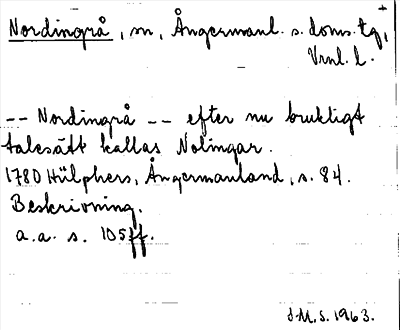 Nordingrå, sn, Ångermanl. s. doms. tg,
Vrnl. l.
-- Nordingrå -- efter nu brukligt
talesätt kallas Nolingar.
1780 Hülphers, Ångermanland, s. 84.
Beskrivning.
a.a. s. 105ff.
J.M.S. 1963.